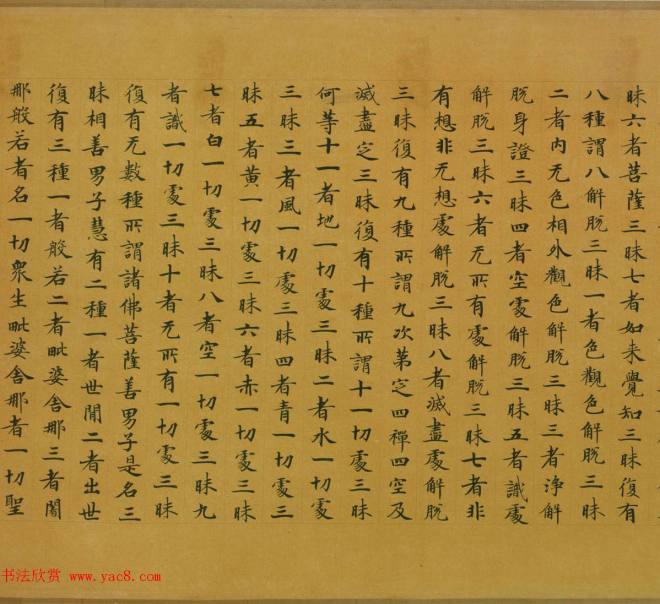 昧六者菩薩三昧七者如来覺知三昧復有
八種謂八解脫三昧一者色觀色解脫三昧
二者内无色相外觀色解脫三昧三者淨解
脫身證三昧四者空處解脫三昧五者識處
解脫三昧六者无所有處解脫三昧七者非
有想非无想處解脫三昧八者滅盡處解脫
三昧復有九種所謂九次第定四禪四空及
滅盡定三昧復有十種所謂十一切處三昧
何等十一者地一切處三昧二者水一切處
三昧三者風一切處三昧四者青一切處三
昧五者黃一切處三昧六者赤一切處三昧
七者白一切處三昧八者空一切處三昧九
者識一切處三昧十者无所有一切處三昧
復有无數種所謂諸佛菩薩善男子是名三
昧相善男子慧有二種一者世間二者出世
復有三種一者般若二者毗婆舍那三者闍
那般若者名一切衆生毗婆舍那者一切聖
书法欣赏 www.yac8.com